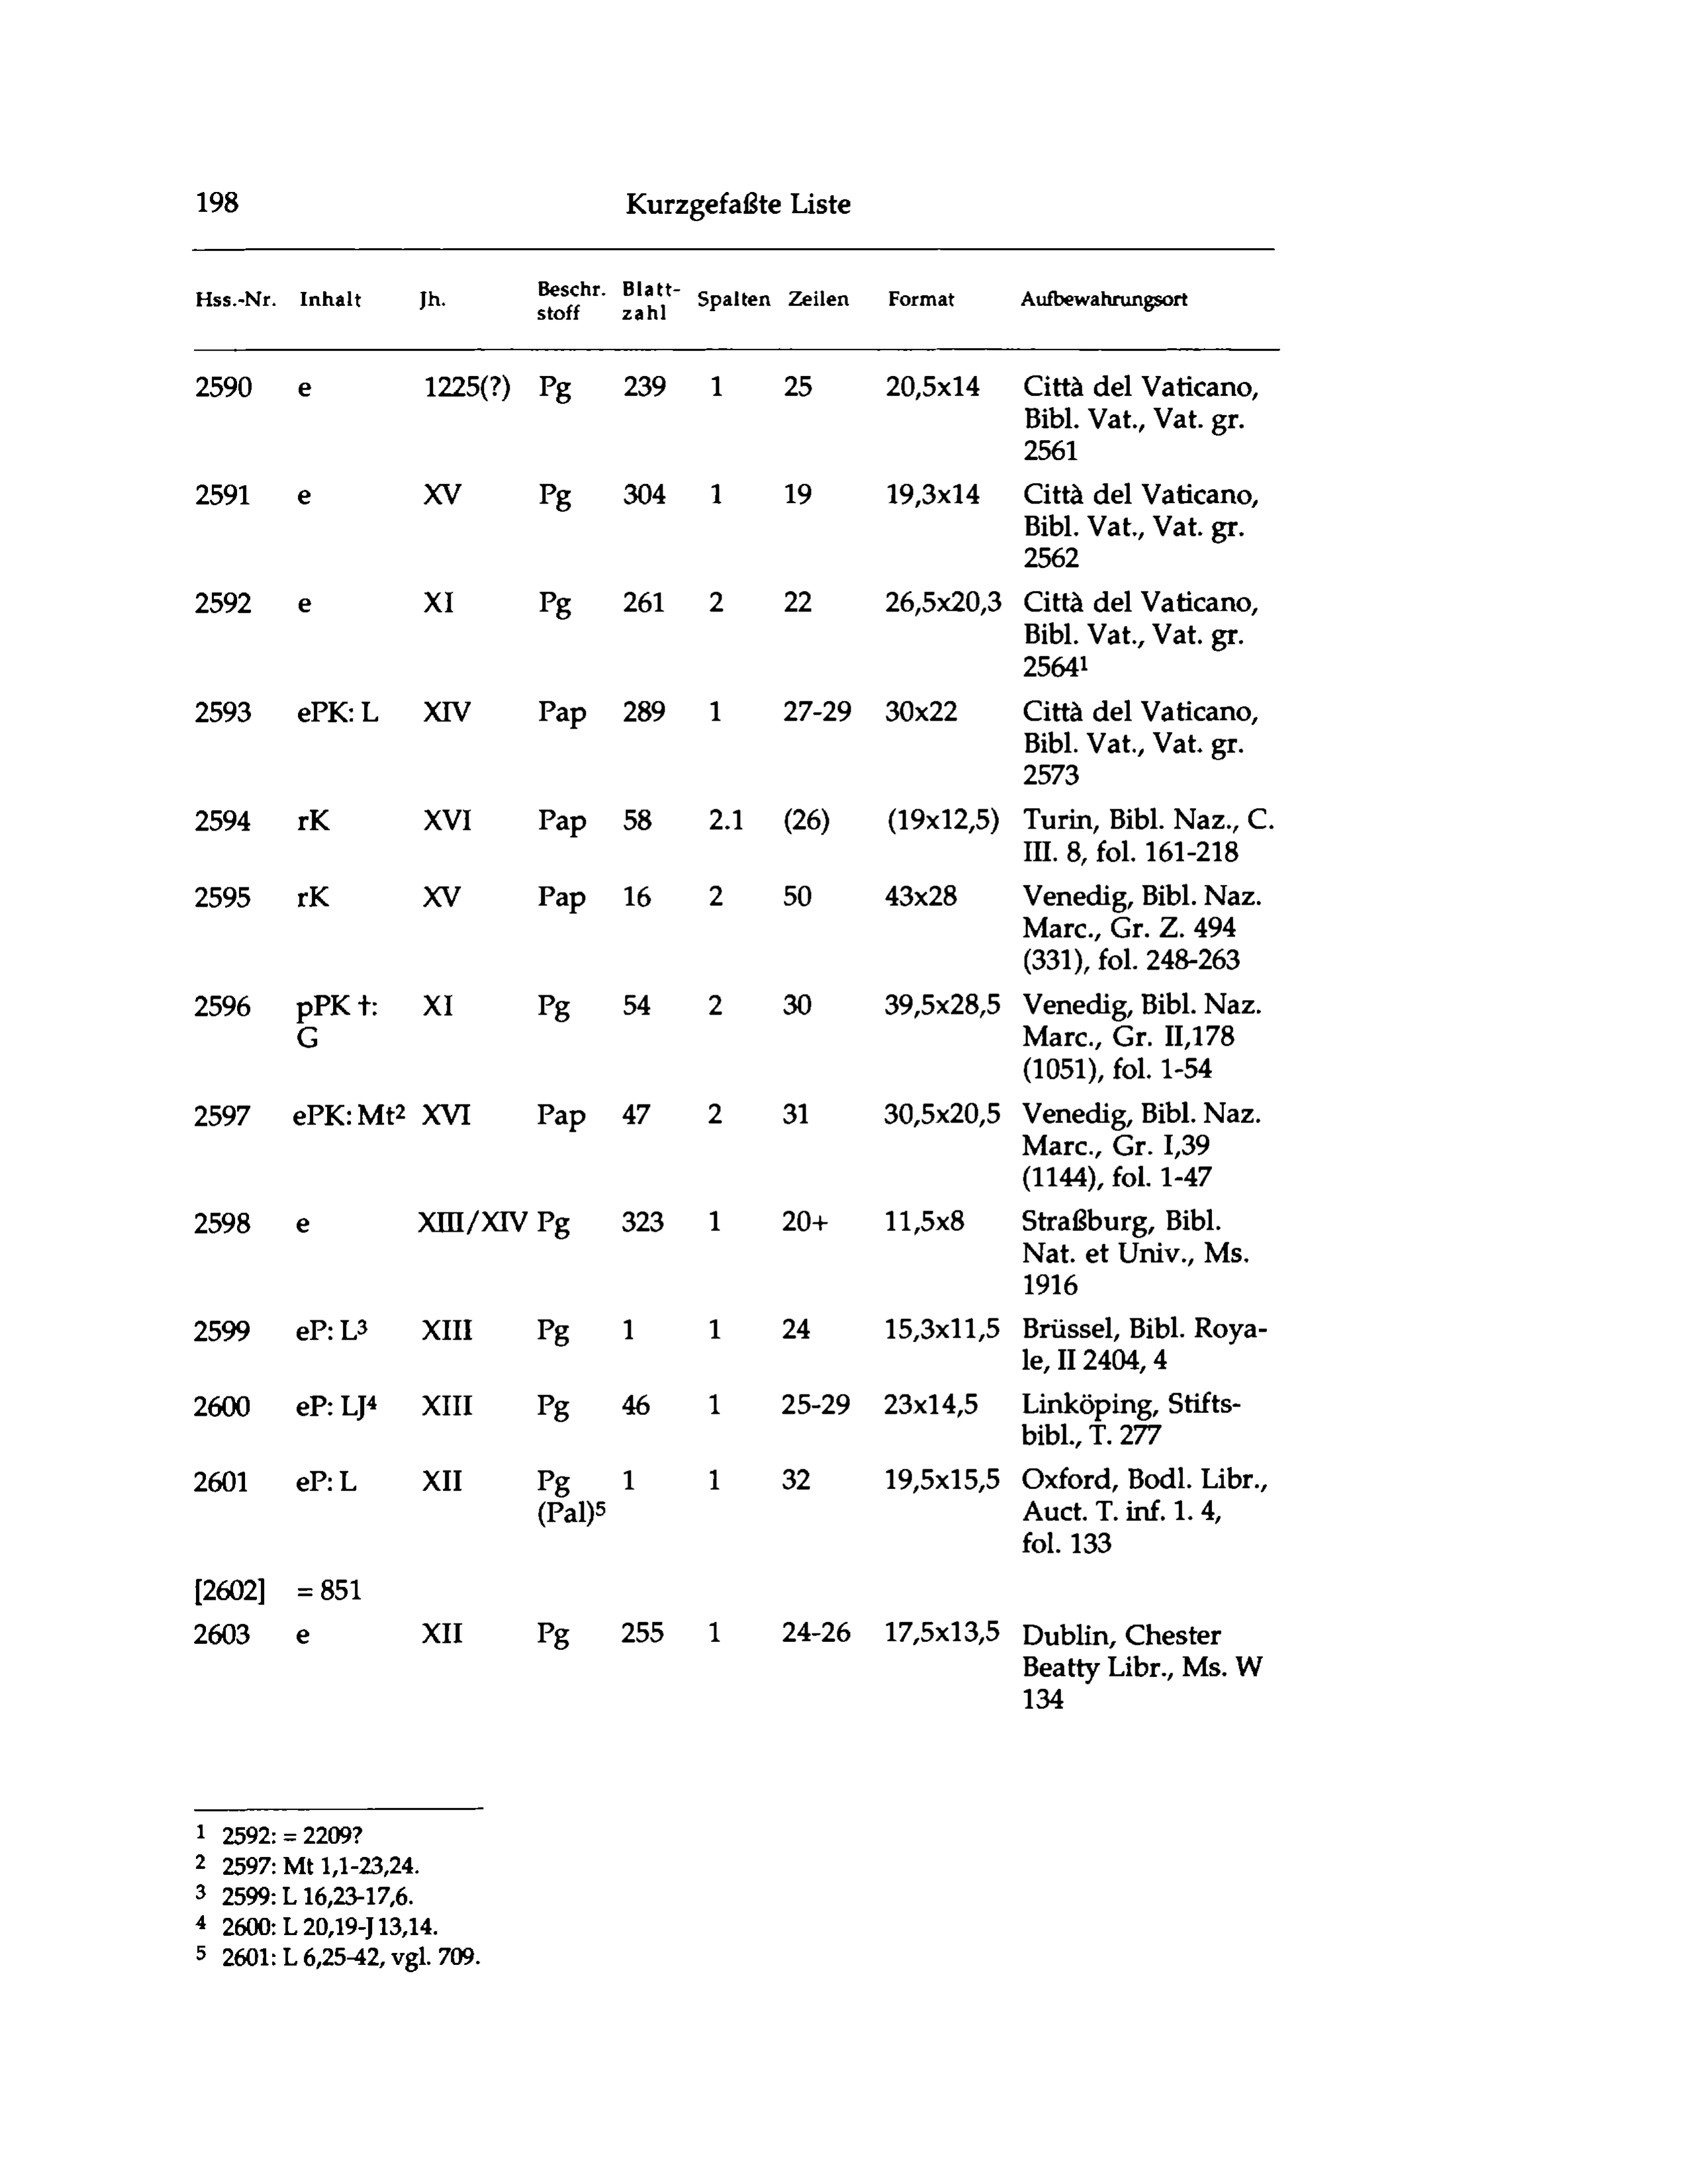 198 Kurzgefaßte Liste
Hss.-Nr. Inhalt Jh. Beschr. stoff Blatt- zahl Spalten Zeilen Format Aufbewahrungsort
2590 e 1225(?) Pg 239 1 25 20,5x14 Città del Vaticano,
Bibl. Vat., Vat. gr.
2561
2591 e XV Pg 304 1 19 19,3x14 Città del Vaticano,
Bibl. Vat., Vat. gr.
2562
2592 e XI Pg 261 2 22 26,5x20,3 Città del Vaticano,
Bibl. Vat., Vat. gr.
2564¹
2593 ePK: L XIV Pap 289 1 27-29 30x22 Città del Vaticano,
Bibl. Vat., Vat. gr.
2573
2594 rK XVI Pap 58 2.1 (26) (19x12,5) Turin, Bibl. Naz., C.
III. 8, fol. 161-218
2595 rK XV Pap 16 2 50 43x28 Venedig, Bibl. Naz.
Marc., Gr. Z. 494
(331), fol. 248-263
2596 pPK †: XI Pg 54 2 30 39,5x28,5 Venedig, Bibl. Naz.
G Marc., Gr. II,178
(1051), fol. 1-54
2597 ePK: Mt² XVI Pap 47 2 31 30,5x20,5 Venedig, Bibl. Naz.
Marc., Gr. I,39
(1144), fol. 1-47
2598 e XIII/XIV Pg 323 1 20+ 11,5x8 Straßburg, Bibl.
Nat. et Univ., Ms.
1916
2599 eP: L³ XIII Pg 1 1 24 15,3x11,5 Brüssel, Bibl. Roya-
le, II 2404, 4
2600 eP: LJ⁴ XIII Pg 46 1 25-29 23x14,5 Linköping, Stifts-
bibl., T. 277
2601 eP: L XII Pg 1 1 32 19,5x15,5 Oxford, Bodl. Libr.,
(Pal)⁵ Auct. T. inf. 1. 4,
fol. 133
[2602] = 851
2603 e XII Pg 255 1 24-26 17,5x13,5 Dublin, Chester
Beatty Libr., Ms. W
134
¹ 2592: = 2209?
² 2597: Mt 1,1-23,24.
³ 2599: L 16,23-17,6.
⁴ 2600: L 20,19-J 13,14.
⁵ 2601: L 6,25-42, vgl. 709.